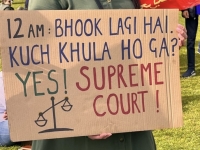 12 AM: BHOOK LAGI HAI.
KUCH KHULA HO GA?
YES! SUPREME
COURT!